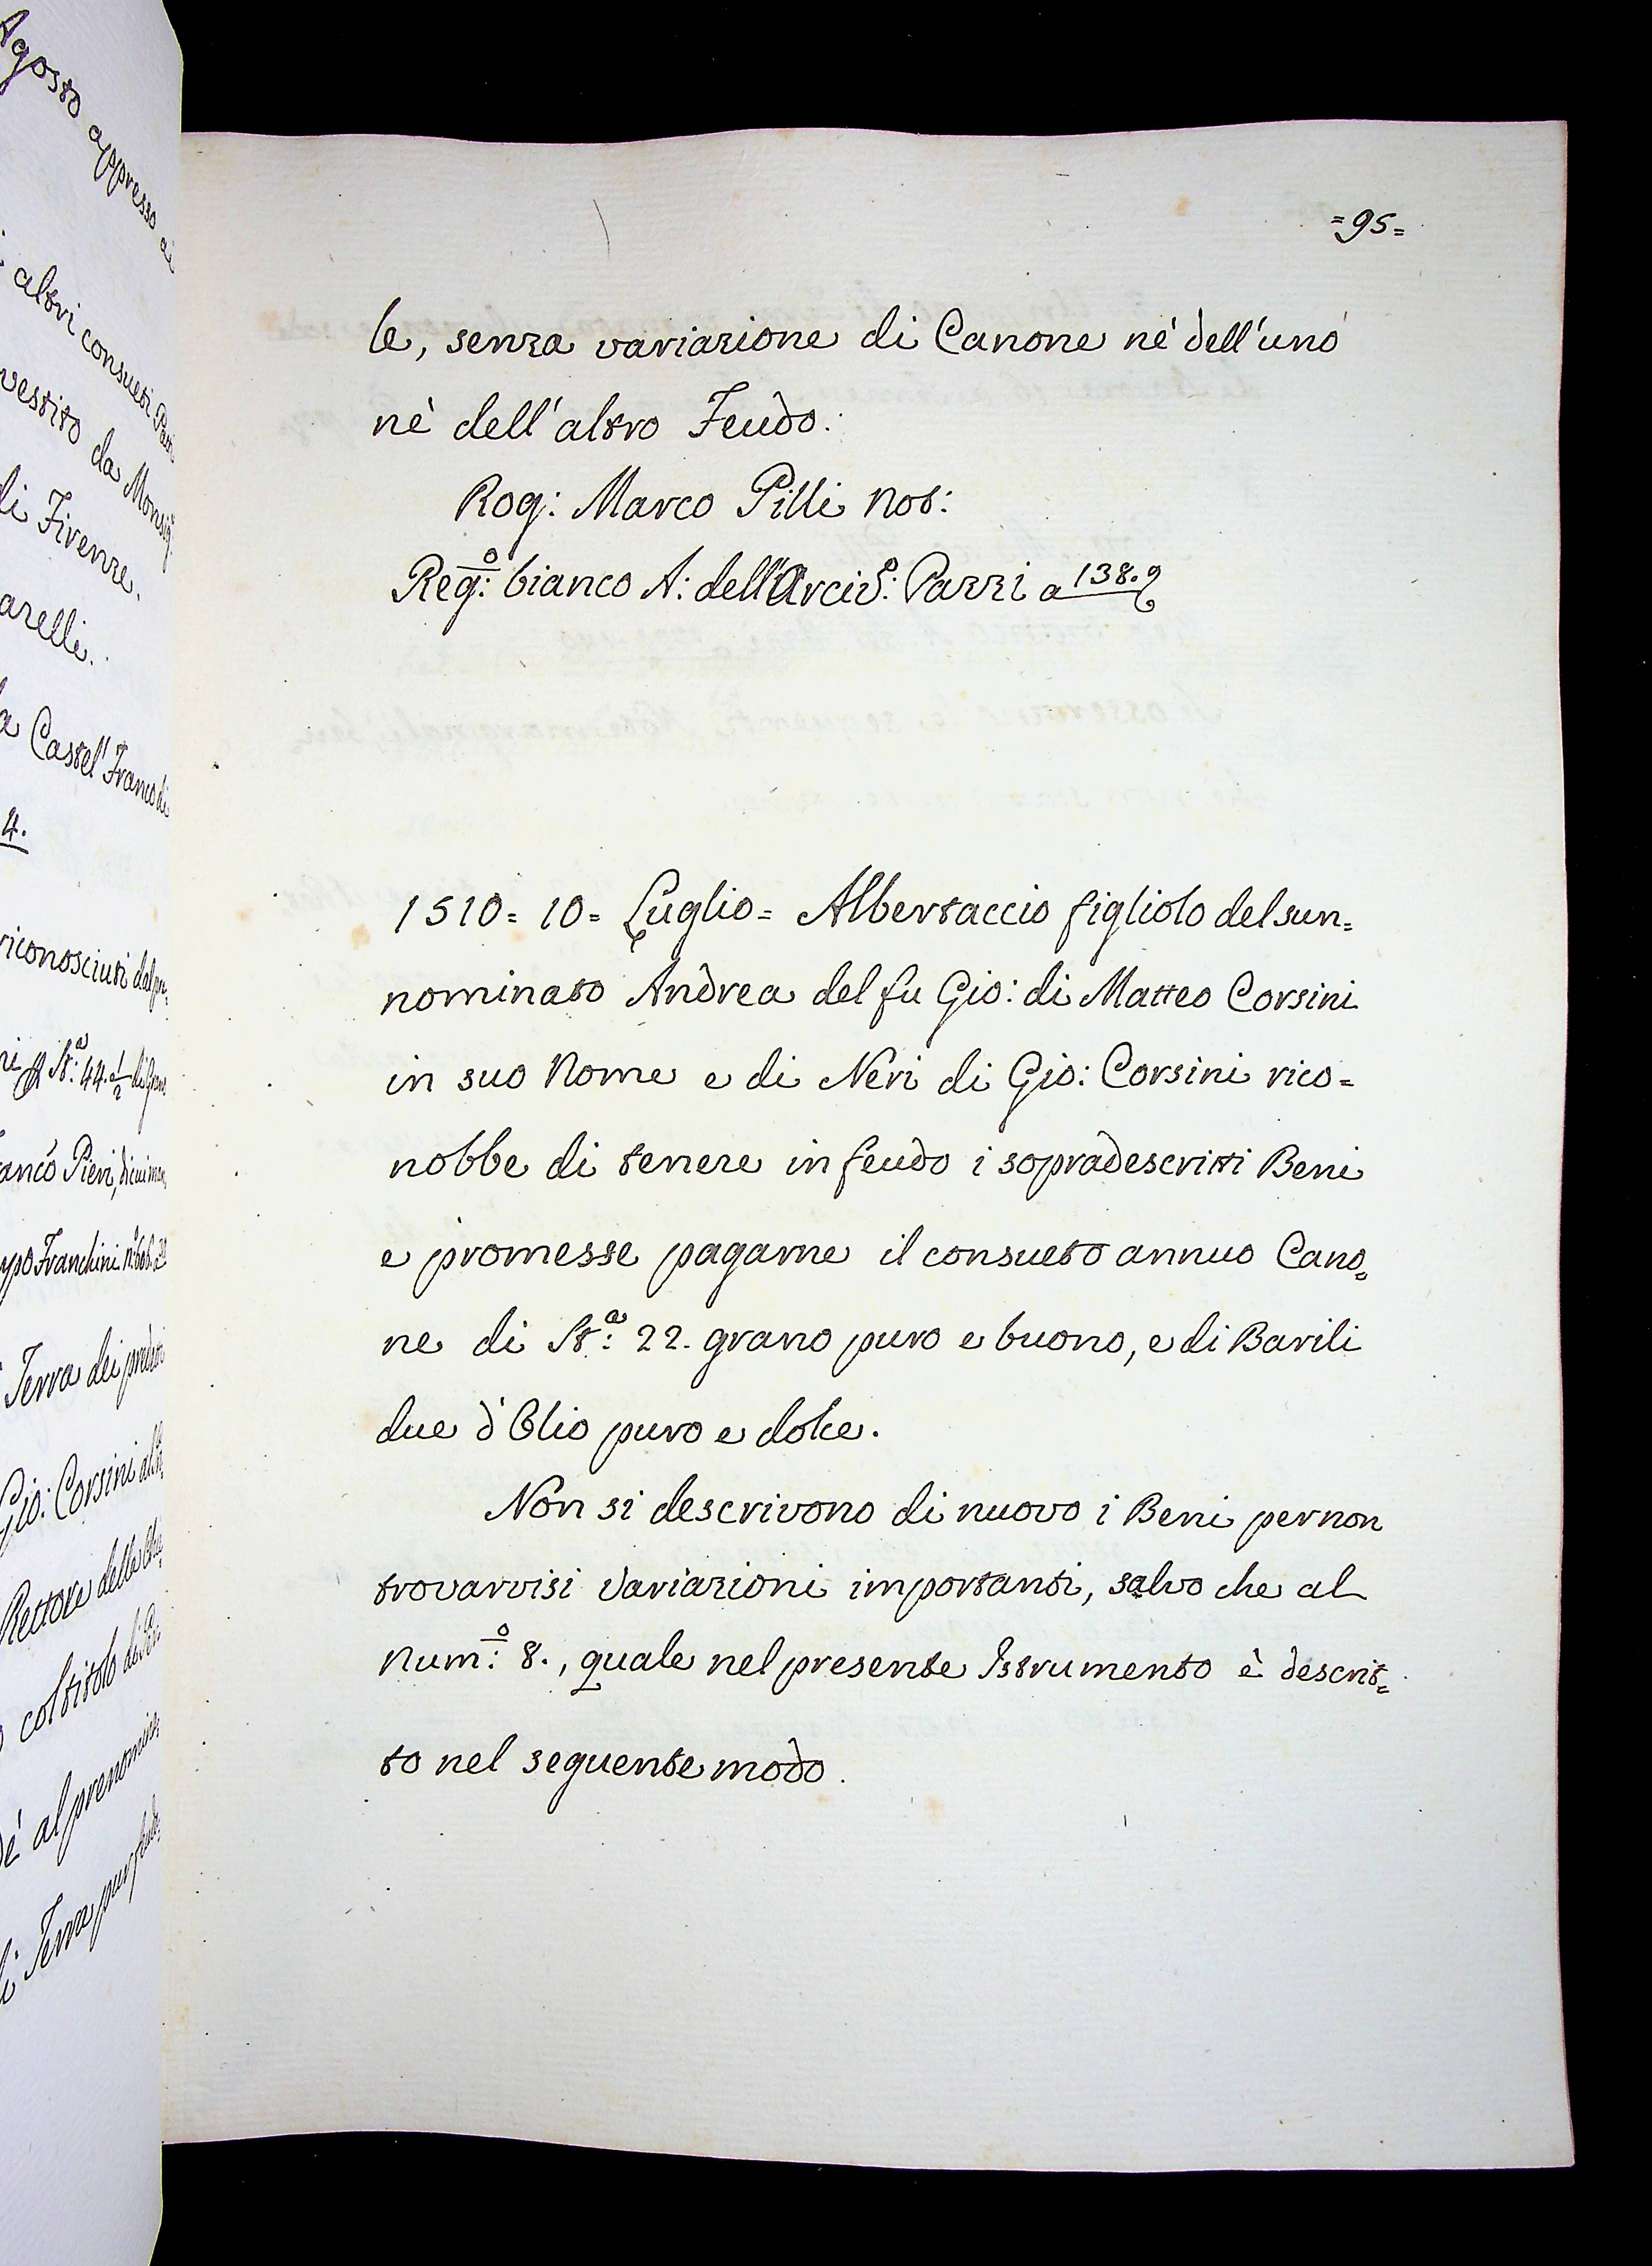 Agosto appresso
altri consueti
vestito da Monsig.
di Firenze.
arelli.
a Castel Franco di
4.
riconosciuti dal
Sta: 44. 1/2 di
anco Pieri,
Franchini
Terra dei
Gio: Corsini
Rettore delle
col titolo di
al
di Terra
=95=
le, senza variazione di Canone nè dell'uno
nè dell'altro Feudo:
Rog: Marco Pilli Not:
Rego: bianco A: dell'Arcivo: Pazzi a 138.
1510= 10= Luglio= Albertaccio figliolo del sun=
nominato Andrea del fu Gio: di Matteo Corsini
in suo Nome e di Neri di Gio: Corsini rico=
nobbe di tenere in feudo i sopradescritti Beni
e promesse pagarne il consueto annuo Cano=
ne di Sta: 22. grano puro e buono, e di Barili
due d'Olio puro e dolce.
Non si descrivono di nuovo i Beni per non
trovarvisi variazioni importanti, salvo che al
Numo: 8., quale nel presente Istrumento è descrit=
to nel seguente modo.